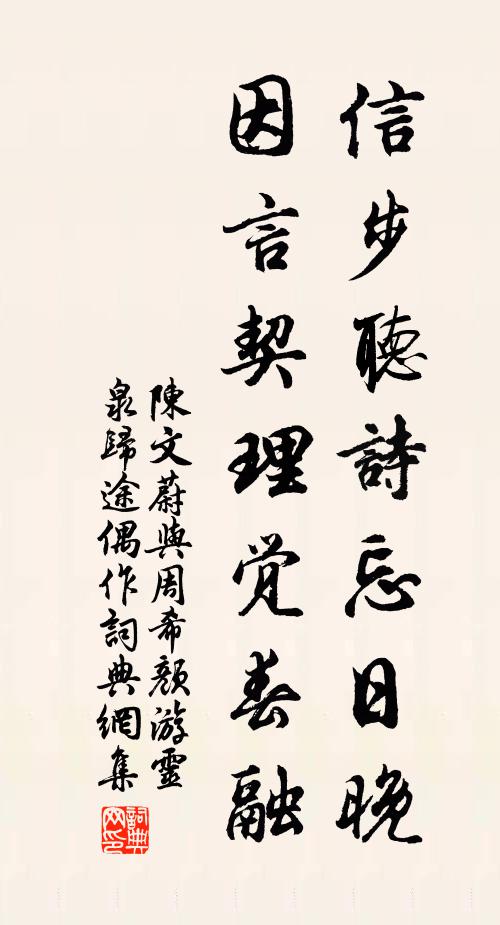 信步聽詩忘日晚
因言契理覺春融
陳文蔚與周希顏游靈
泉歸途偶作詞典網集
詞典
网印